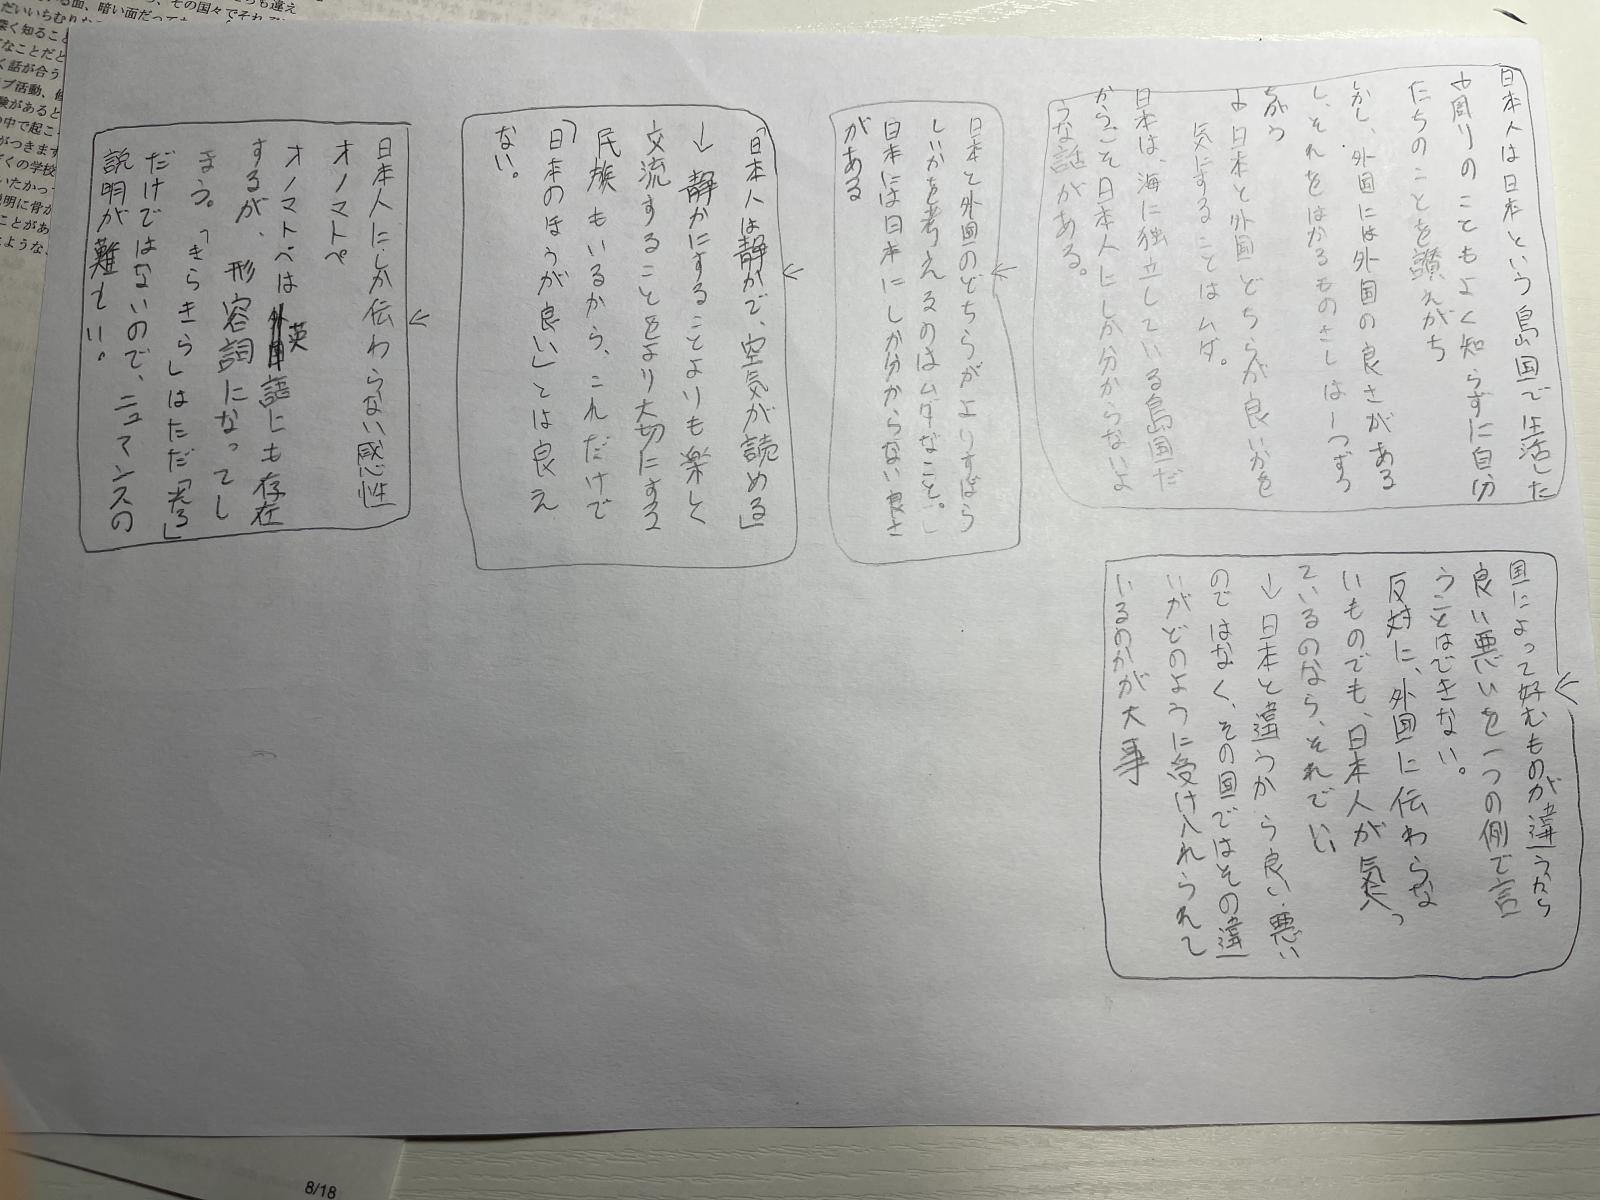 日本人は日本という島国で生活した
り周りのこともよく知らずに自分
たちのことを讃えがち
しかし、外国には外国の良さがある
し、それをはかるものさしは一つずつ
ちがう
↓日本と外国どちらが良いかを
気にすることはムダ。
日本は、海に独立している島国だ
からこそ日本人にしか分からないよ
うな話がある。
日本と外国のどちらがよりすばら
しいかを考えるのはムダなこと。
日本には日本にしか分からない良さ
がある
「日本人は静かで、空気が読める」
↓静かにすることよりも楽しく
交流することをより大切にする
民族もいるから、これだけで
「日本のほうが良い」とは良え
ない。
日本人にしか伝わらない感性
オノマトペ
オノマトペは英語にも存在
するが、形容詞になってし
まう。「きらきら」はただ「光る」
だけではないので、ニュアンスの
説明が難しい。
国によって好むものが違うから
良い悪いを一つの例で言
うことはできない。
反対に、外国に伝わらな
いものでも、日本人が気に入っ
ているのなら、それでいい
↓日本と違うから良い・悪い
のではなく、その国ではその違
いがどのように受け入れられて
いるのかが大事
8/18